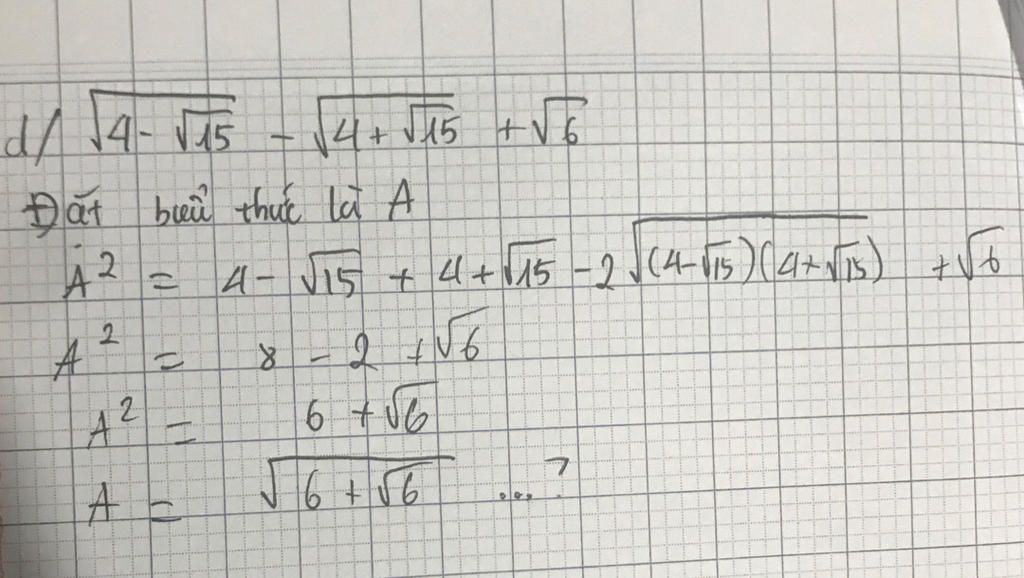 d/ √(4 - √15) - √(4 + √15) + √6
Đặt biểu thức là A
A² = 4 - √15 + 4 + √15 - 2√((4-√15)(4+√15)) + √6
A² = 8 - 2 + √6
A² = 6 + √6
A = √(6 + √6) ...?